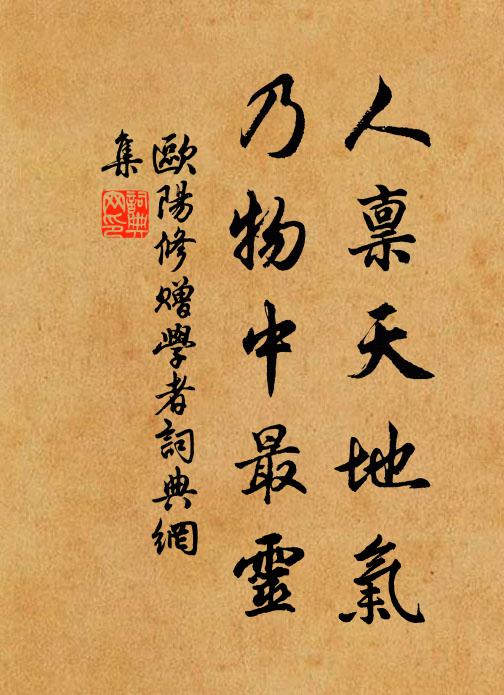 人禀天地氣
乃物中最靈
歐陽修贈學者詞典網
集
詞典
网印